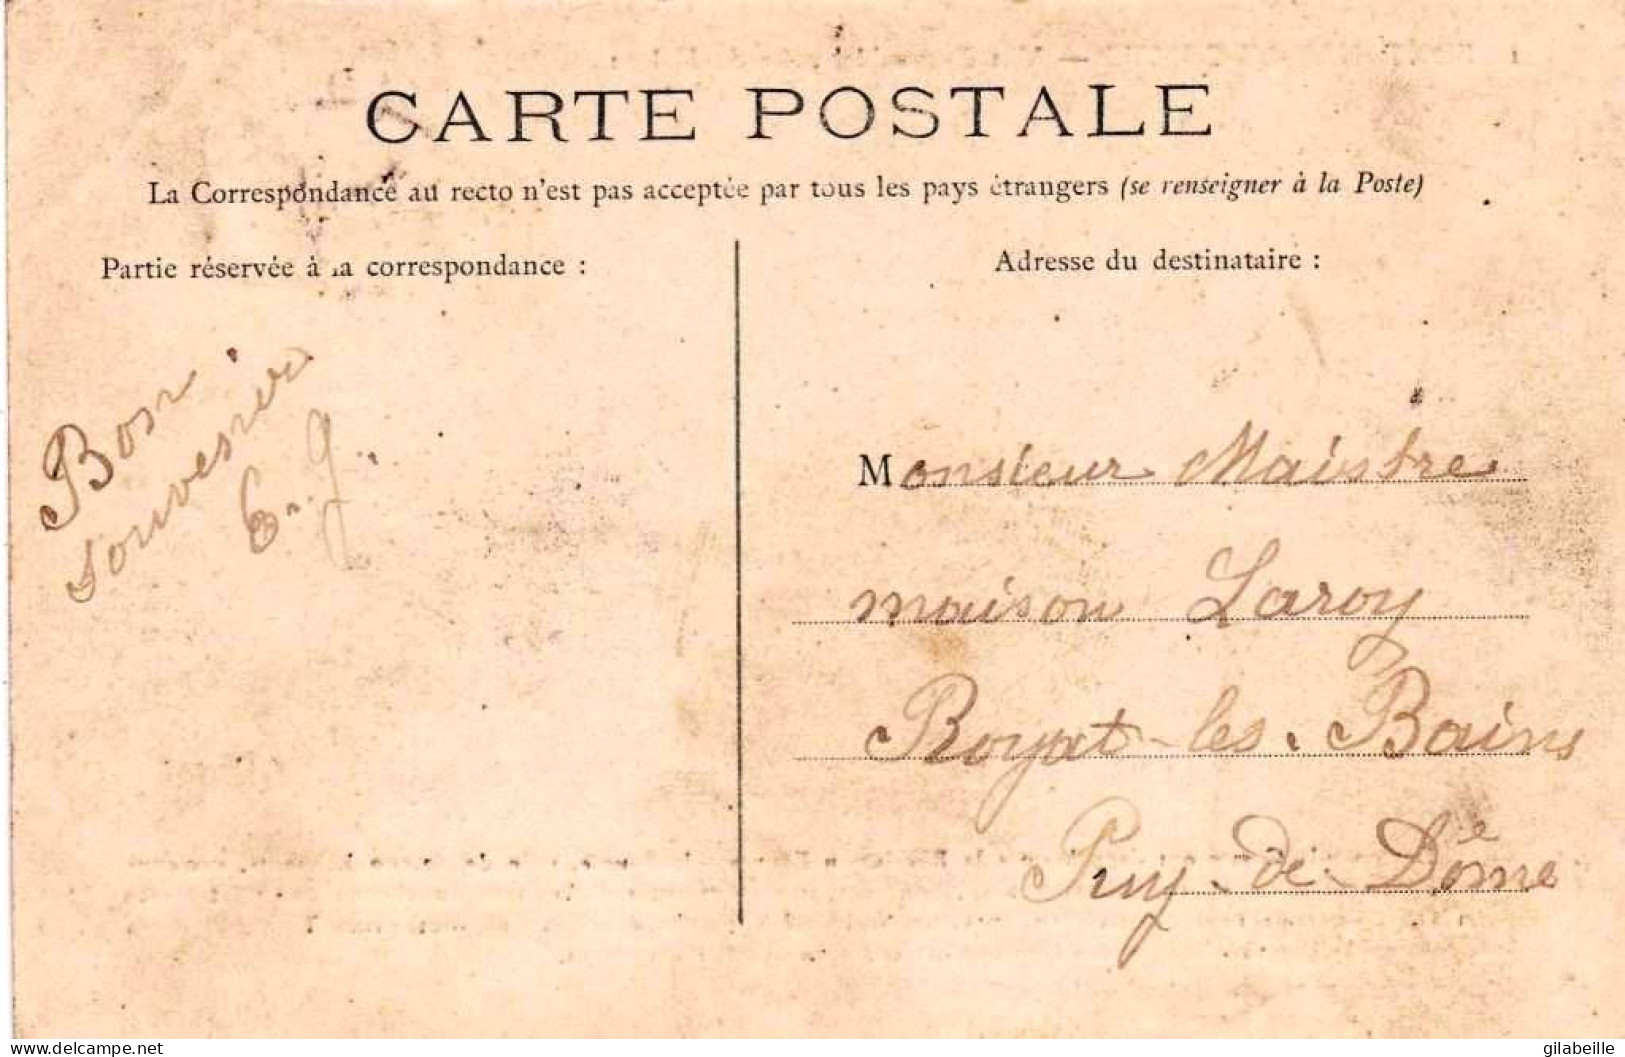 CARTE POSTALE
La Correspondance au recto n'est pas acceptée par tous les pays étrangers (se renseigner à la Poste)
Partie réservée à la correspondance :
Bon
souvenir
E. G.
Adresse du destinataire :
Monsieur Maistre
maison Laroy
Royat-les-Bains
Puy-de-Dôme
www.delcampe.net
gilabeille